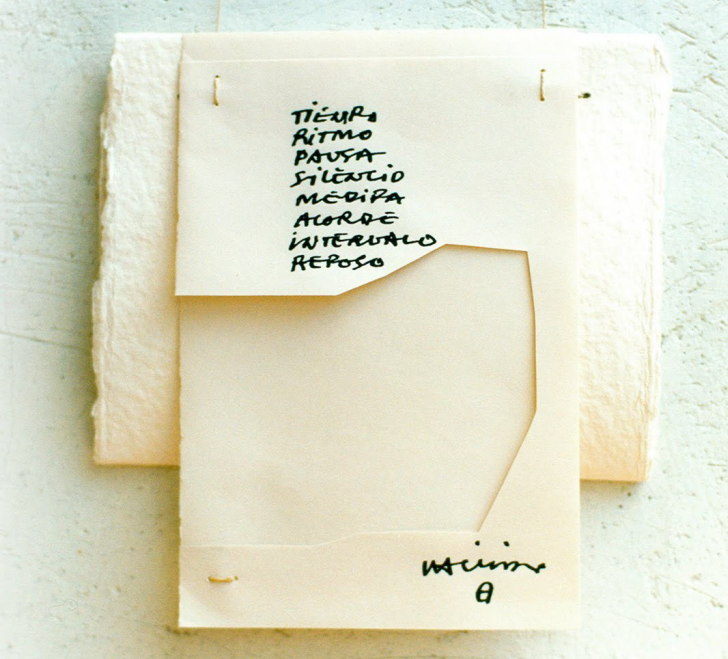 TIEMPO
RITMO
PAUSA
SILENCIO
MEDIDA
ACORDE
INTERVALO
REPOSO